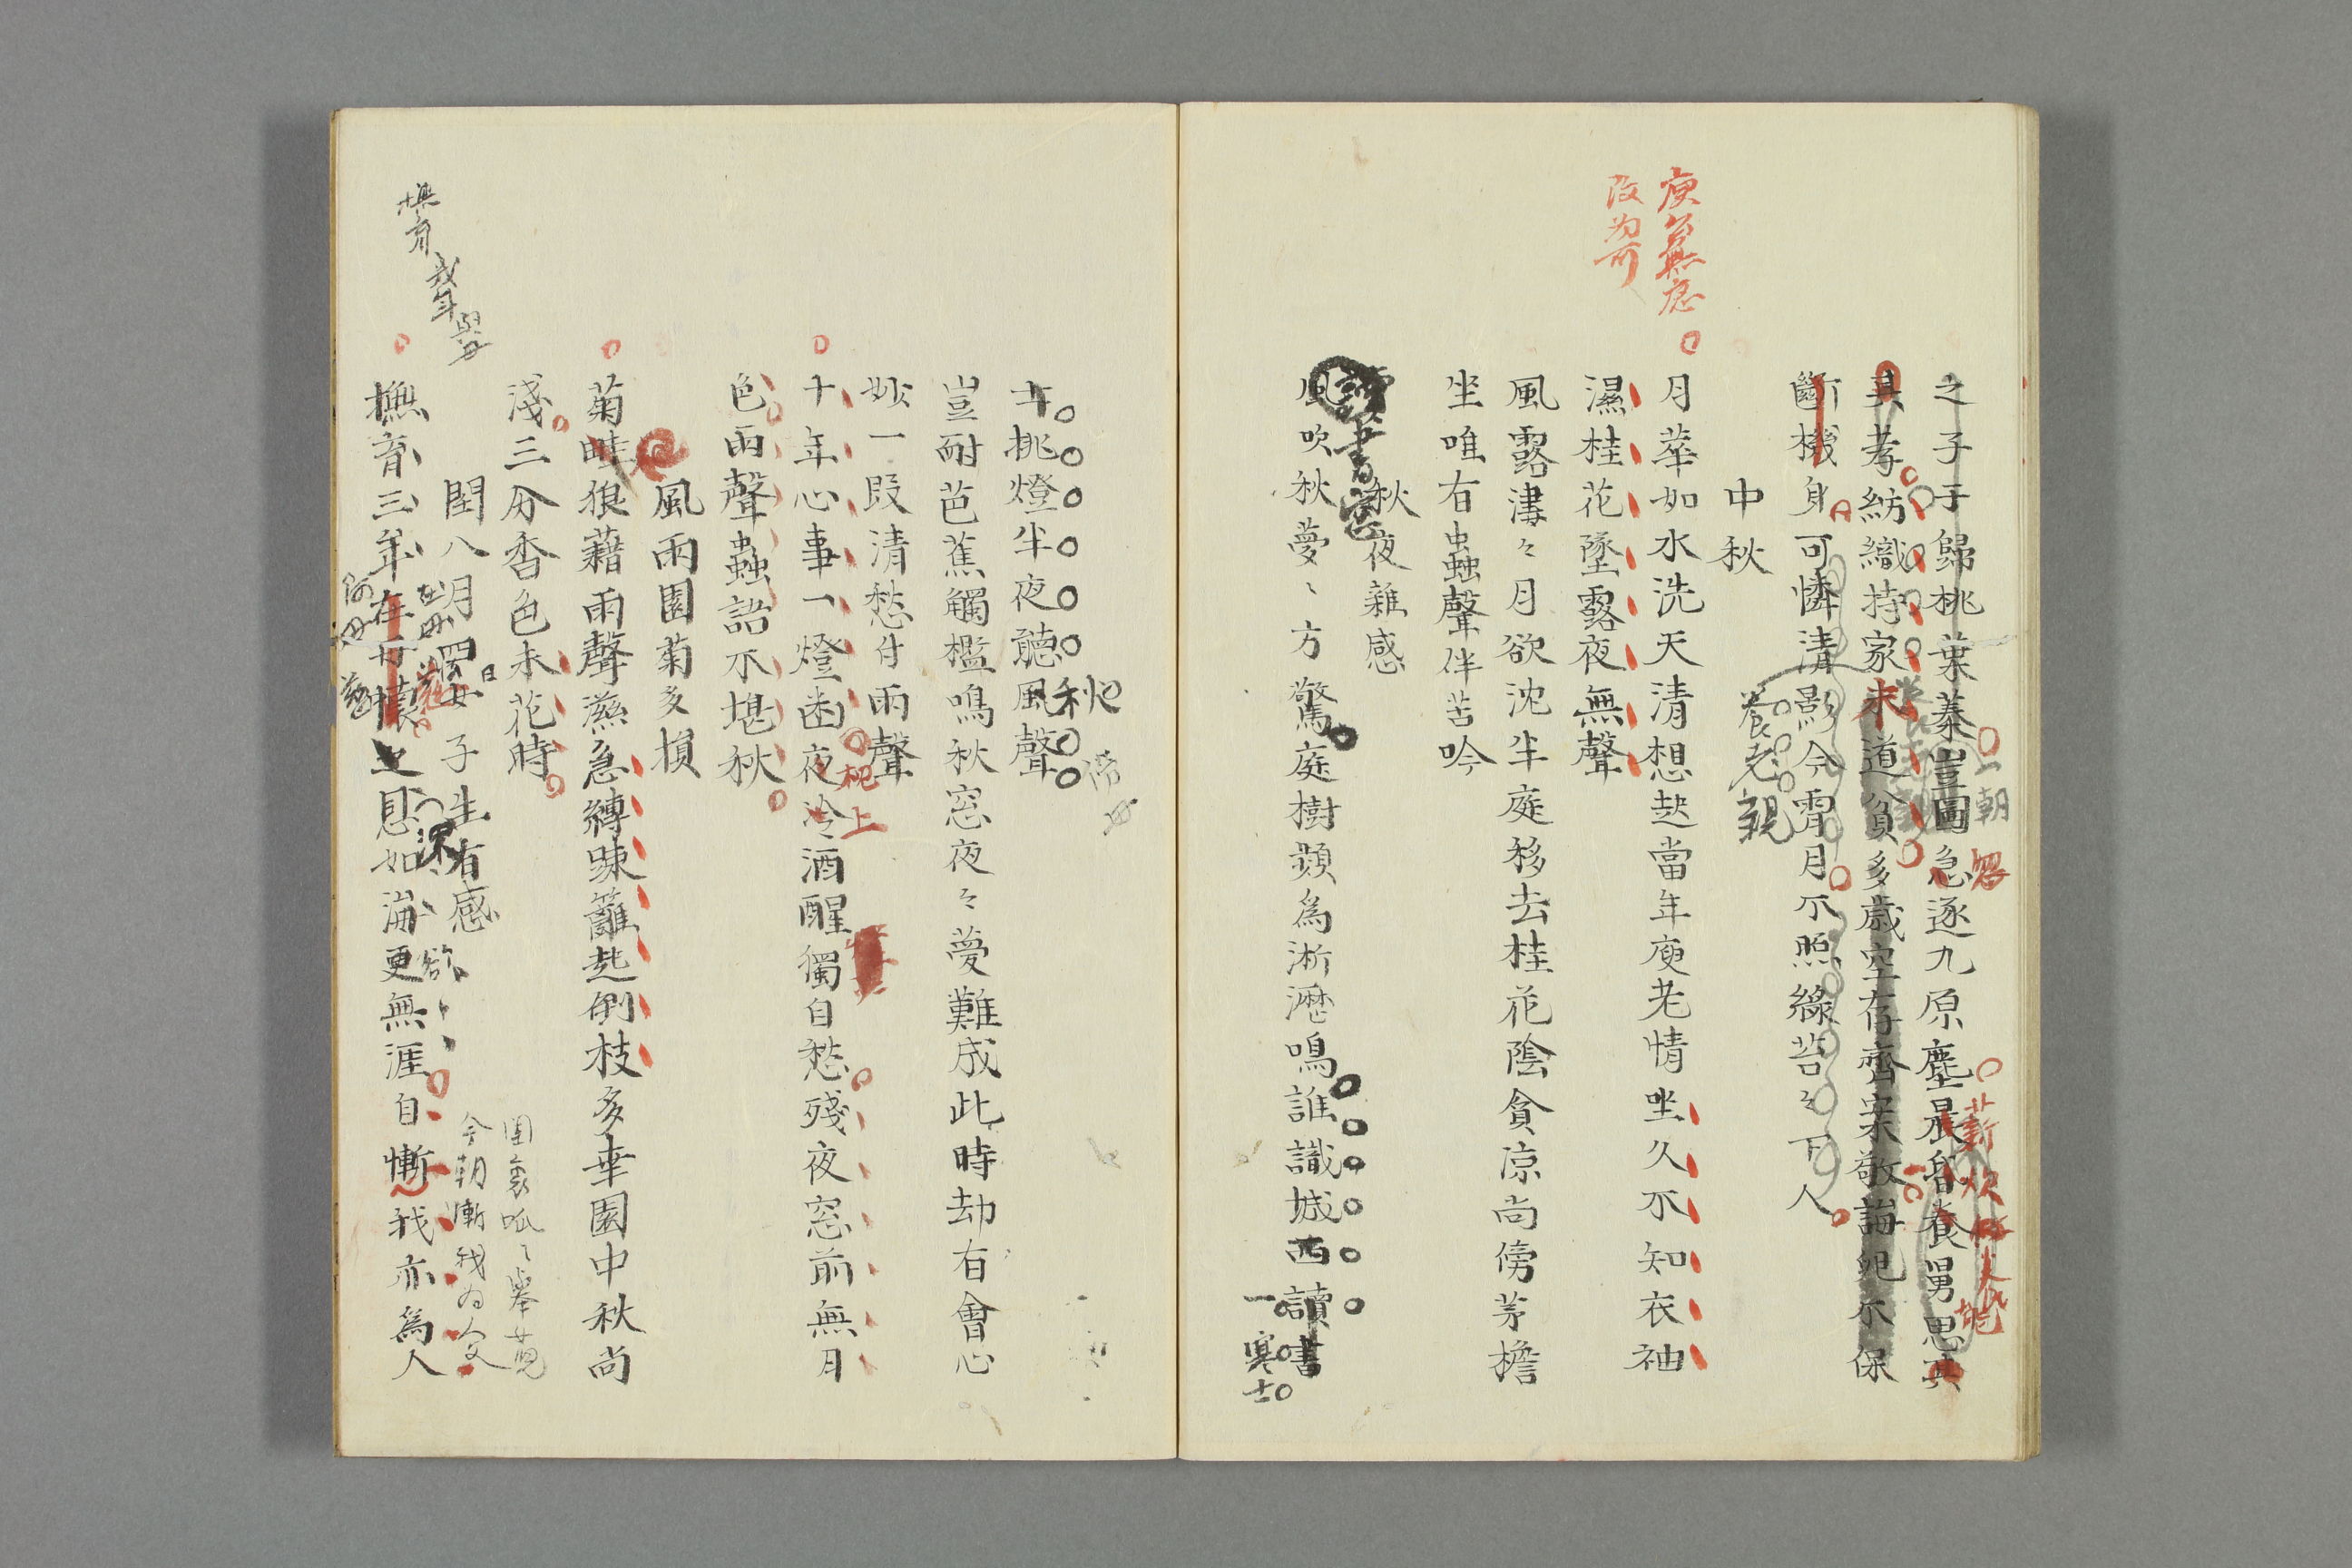 之子于歸桃葉蓁豈圖急逐九原塵晨昏養男思其
一朝
忽
薪炊
具孝紡織持家未道貧多歳空存齊案敬誨兒不保
斷機身可憐清影今宵月不照綠苔之下人
養老親
中秋
庾公無恙
改為可
月華如水洗天清想起當年庾老情坐久不知衣袖
濕桂花墜露夜無聲
風露溥々月欲沈半庭移去桂花陰貪凉尚傍茅檐
坐唯有蟲聲伴苦吟
秋夜雜感
讀書窓
風吹秋夢々方驚庭樹頻為淅瀝鳴誰識城西讀書
一寒士
士挑燈半夜聽風聲
秋
豈耐芭蕉觸檻鳴秋窓夜々夢難成此時劫有會心
妙一段清愁付雨聲
十年心事一燈幽夜冷酒醒獨自愁殘夜窓前無月
枕上
色雨聲蟲語不堪秋
風雨園菊多損
菊畦狼藉雨聲滋急縛踈籬起倒枝多幸園中秋尚
淺三分香色未花時
閏八月四日女子生有感
闈裏呱々擧蒭
今朝慚我為人父
撫育三年在母懷之恩如海更無涯自慚我亦為人
阿母慈
深
欲
撫育三年與母